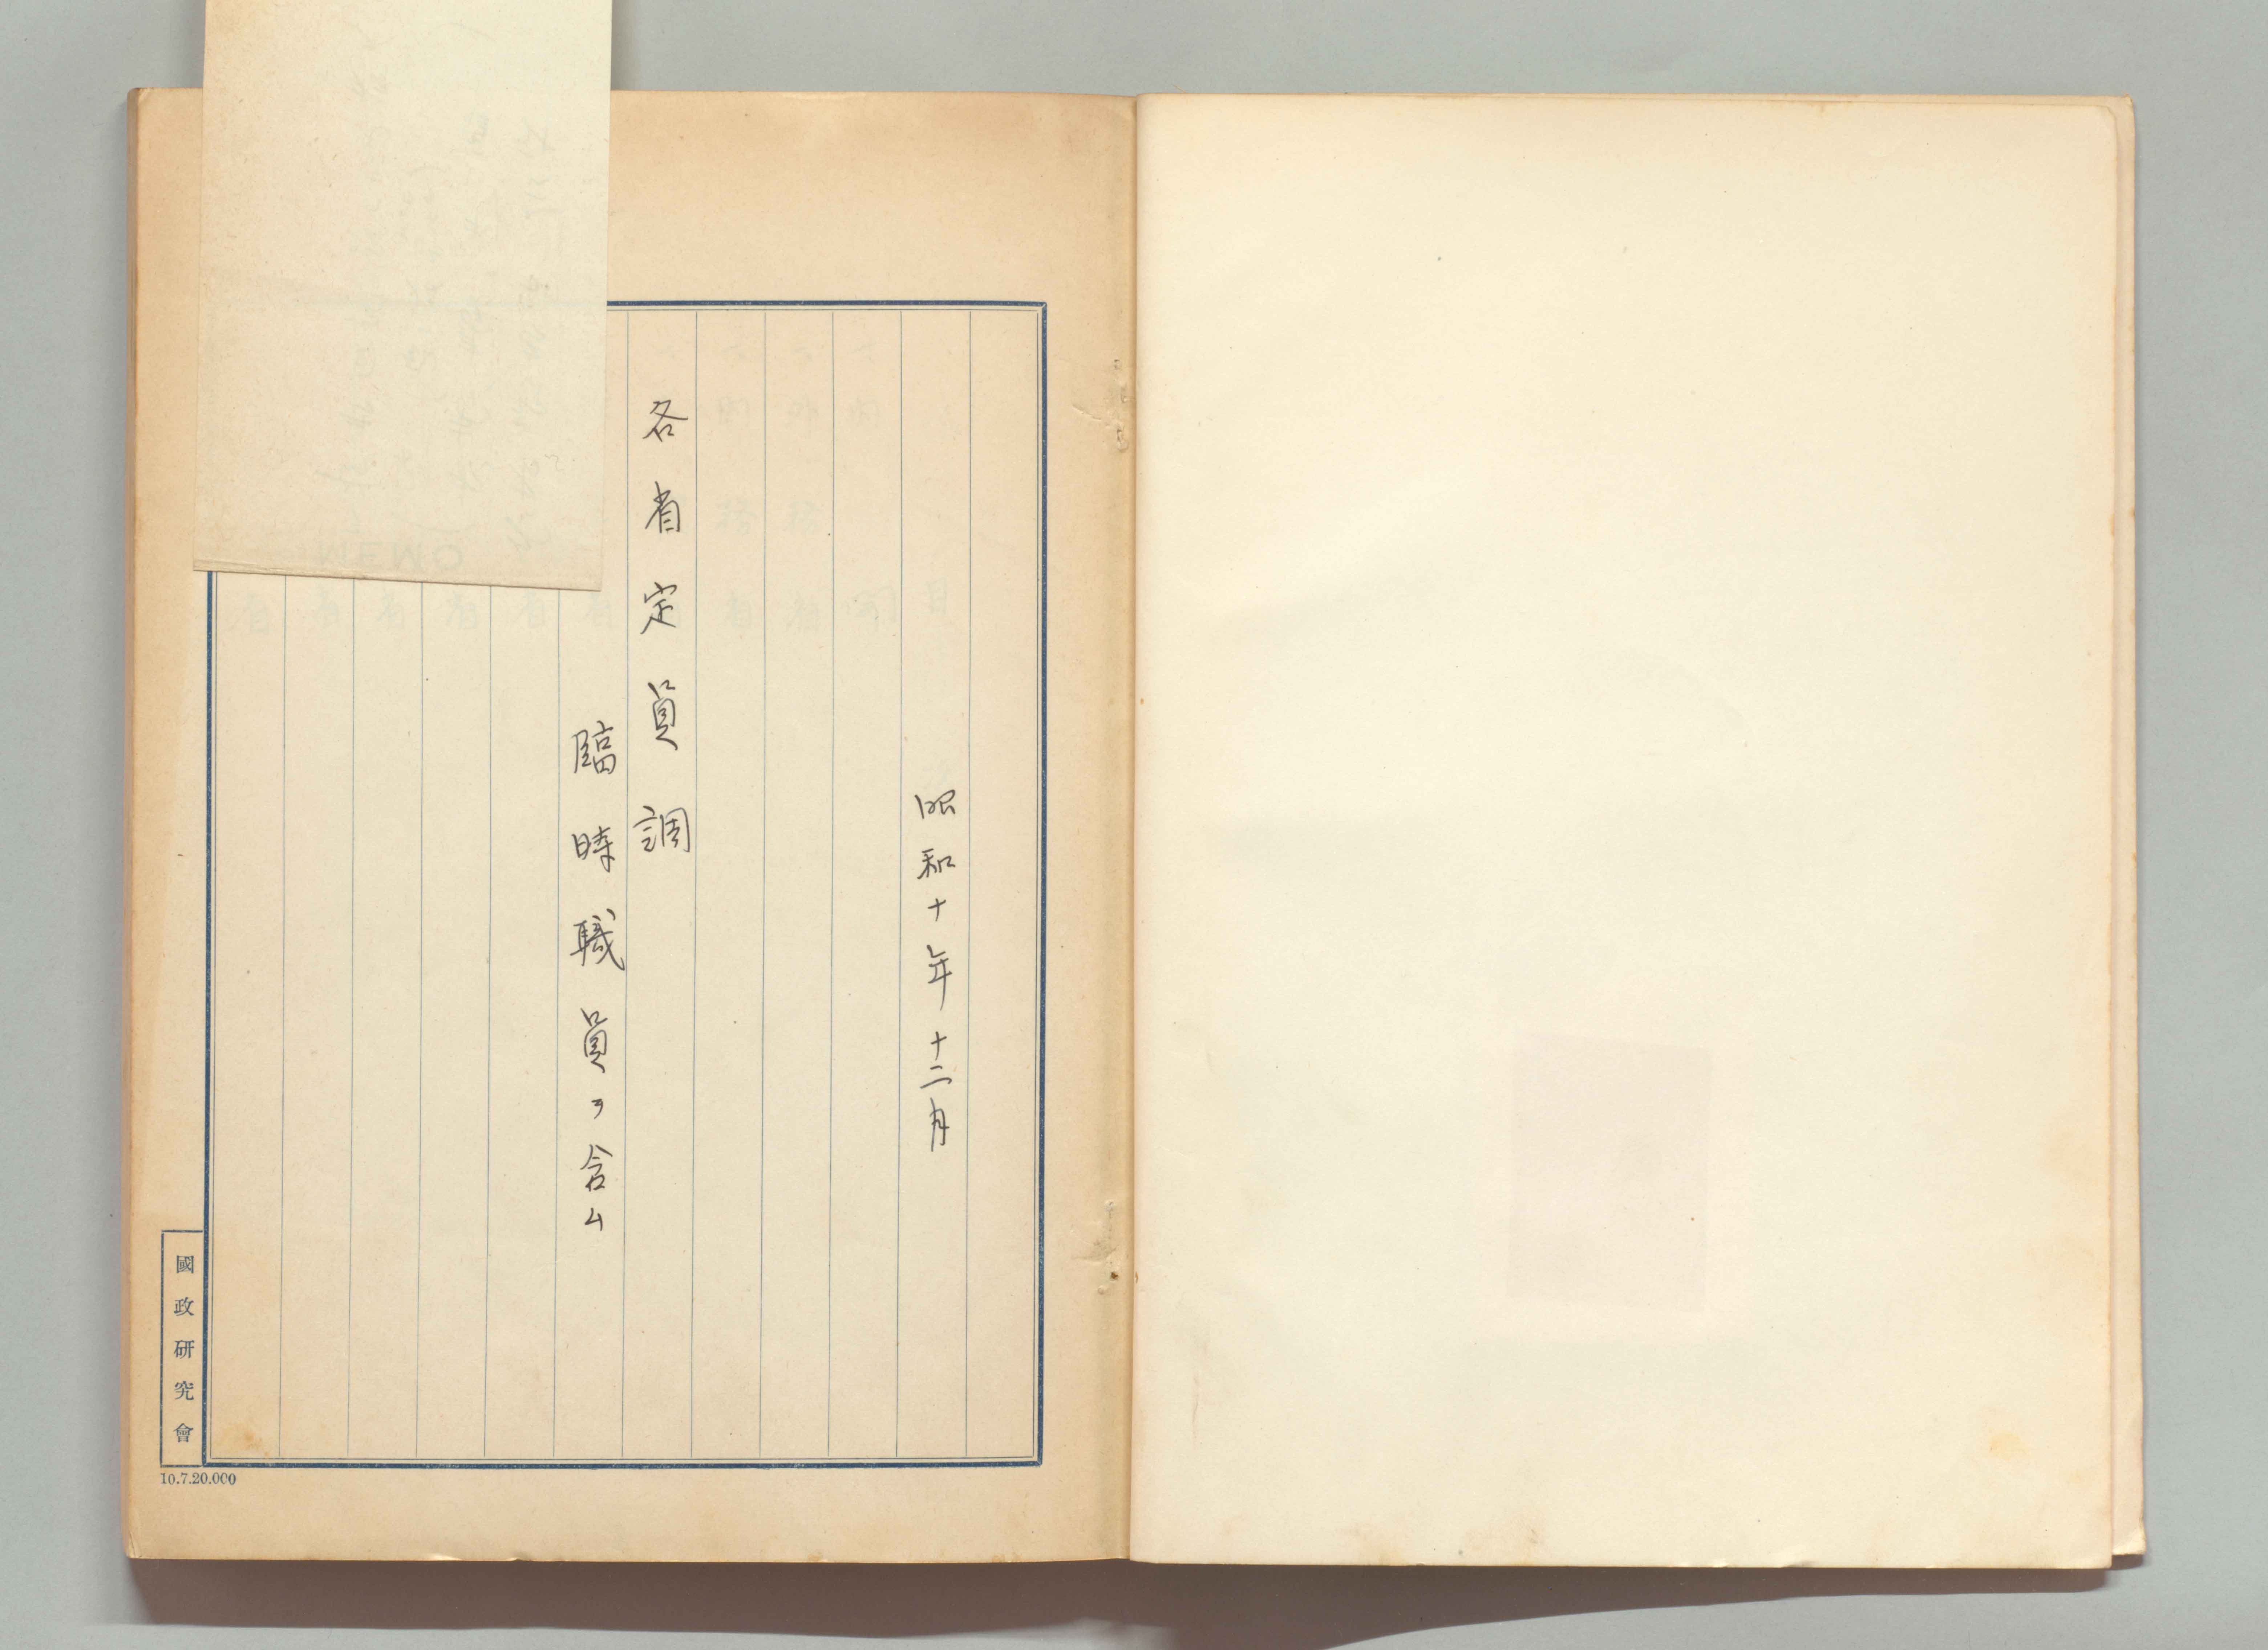 昭和十年十二月
各省定員調
臨時職員ヲ含ム
國政研究會
10.7.20.000